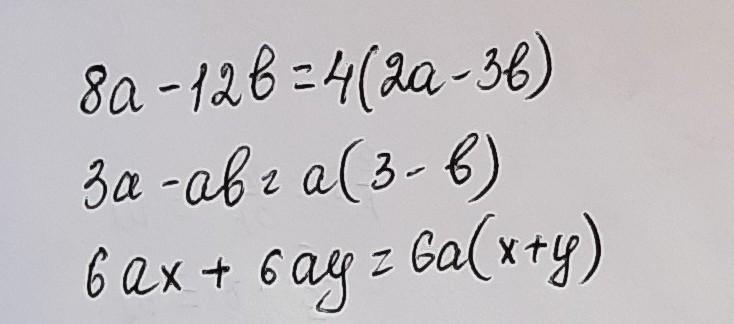 8a - 12b = 4(2a - 3b)
3a - ab = a(3 - b)
6ax + 6ay = 6a(x+y)